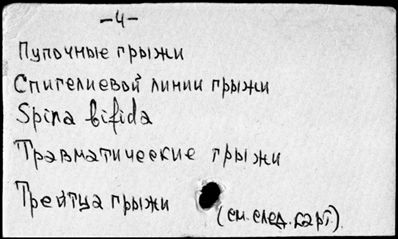 -4-
Пупочные грыжи
Спигелиевой линии грыжи
Spina bifida
Травматические грыжи
Трейтца грыжи
(см. след. карт.)